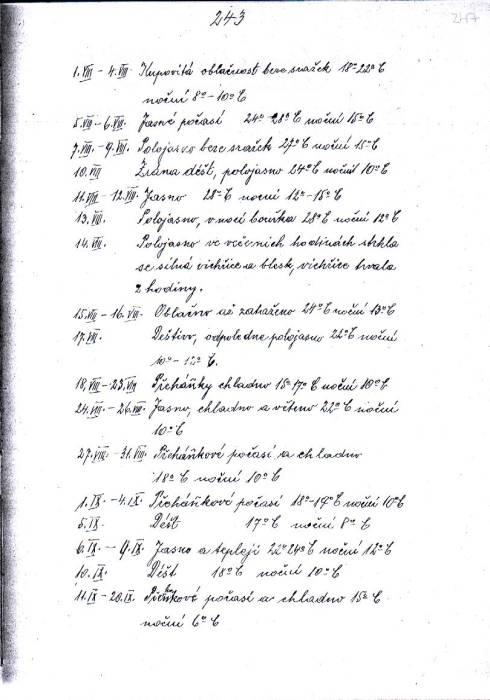 243
247
1.VIII - 4.VIII. Kupovitá oblačnost beze srážek 18°-22°C
noční 8° - 10°C
5.VIII. - 6.VIII. Jasné počasí 24°-28°C noční 15°C
7.VIII. - 9.VIII. Polojasno beze srážek 27°C noční 15°C
10.VIII Zrána déšť, polojasno 24°C noční 10°C
11.VIII - 12.VIII. Jasno 28°C noční 12° - 15°C
13.VIII. Polojasno, v noci bouřka 28°C noční 12°C
14.VIII. Polojasno ve večerních hodinách strhla
se silná vichřice a blesk, vichřice trvala
2 hodiny.
15.VIII - 16.VIII. Oblačno až zataženo 24°C noční 13°C
17.VIII. Deštivo, odpoledne polojasno 22°C noční
10° - 12°C.
18.VIII - 23.VIII Přeháňky chladno 15°-17°C noční 10°C
24.VIII. - 26.VIII. Jasno, chladno a větrno 22°C noční
10°C
27.VIII. - 31.VIII. Přeháňkové počasí a chladno
18°C noční 10°C
1.IX. - 4.IX. Přeháňkové počasí 18°-19°C noční 10°C
5.IX. Déšť 17°C noční 8°C
6.IX. - 9.IX. Jasno a tepleji 22°-24°C noční 12°C
10.IX. Déšť 18°C noční 10°C
11.IX - 20.IX. Přeháňkové počasí a chladno 15°C
noční 6°C